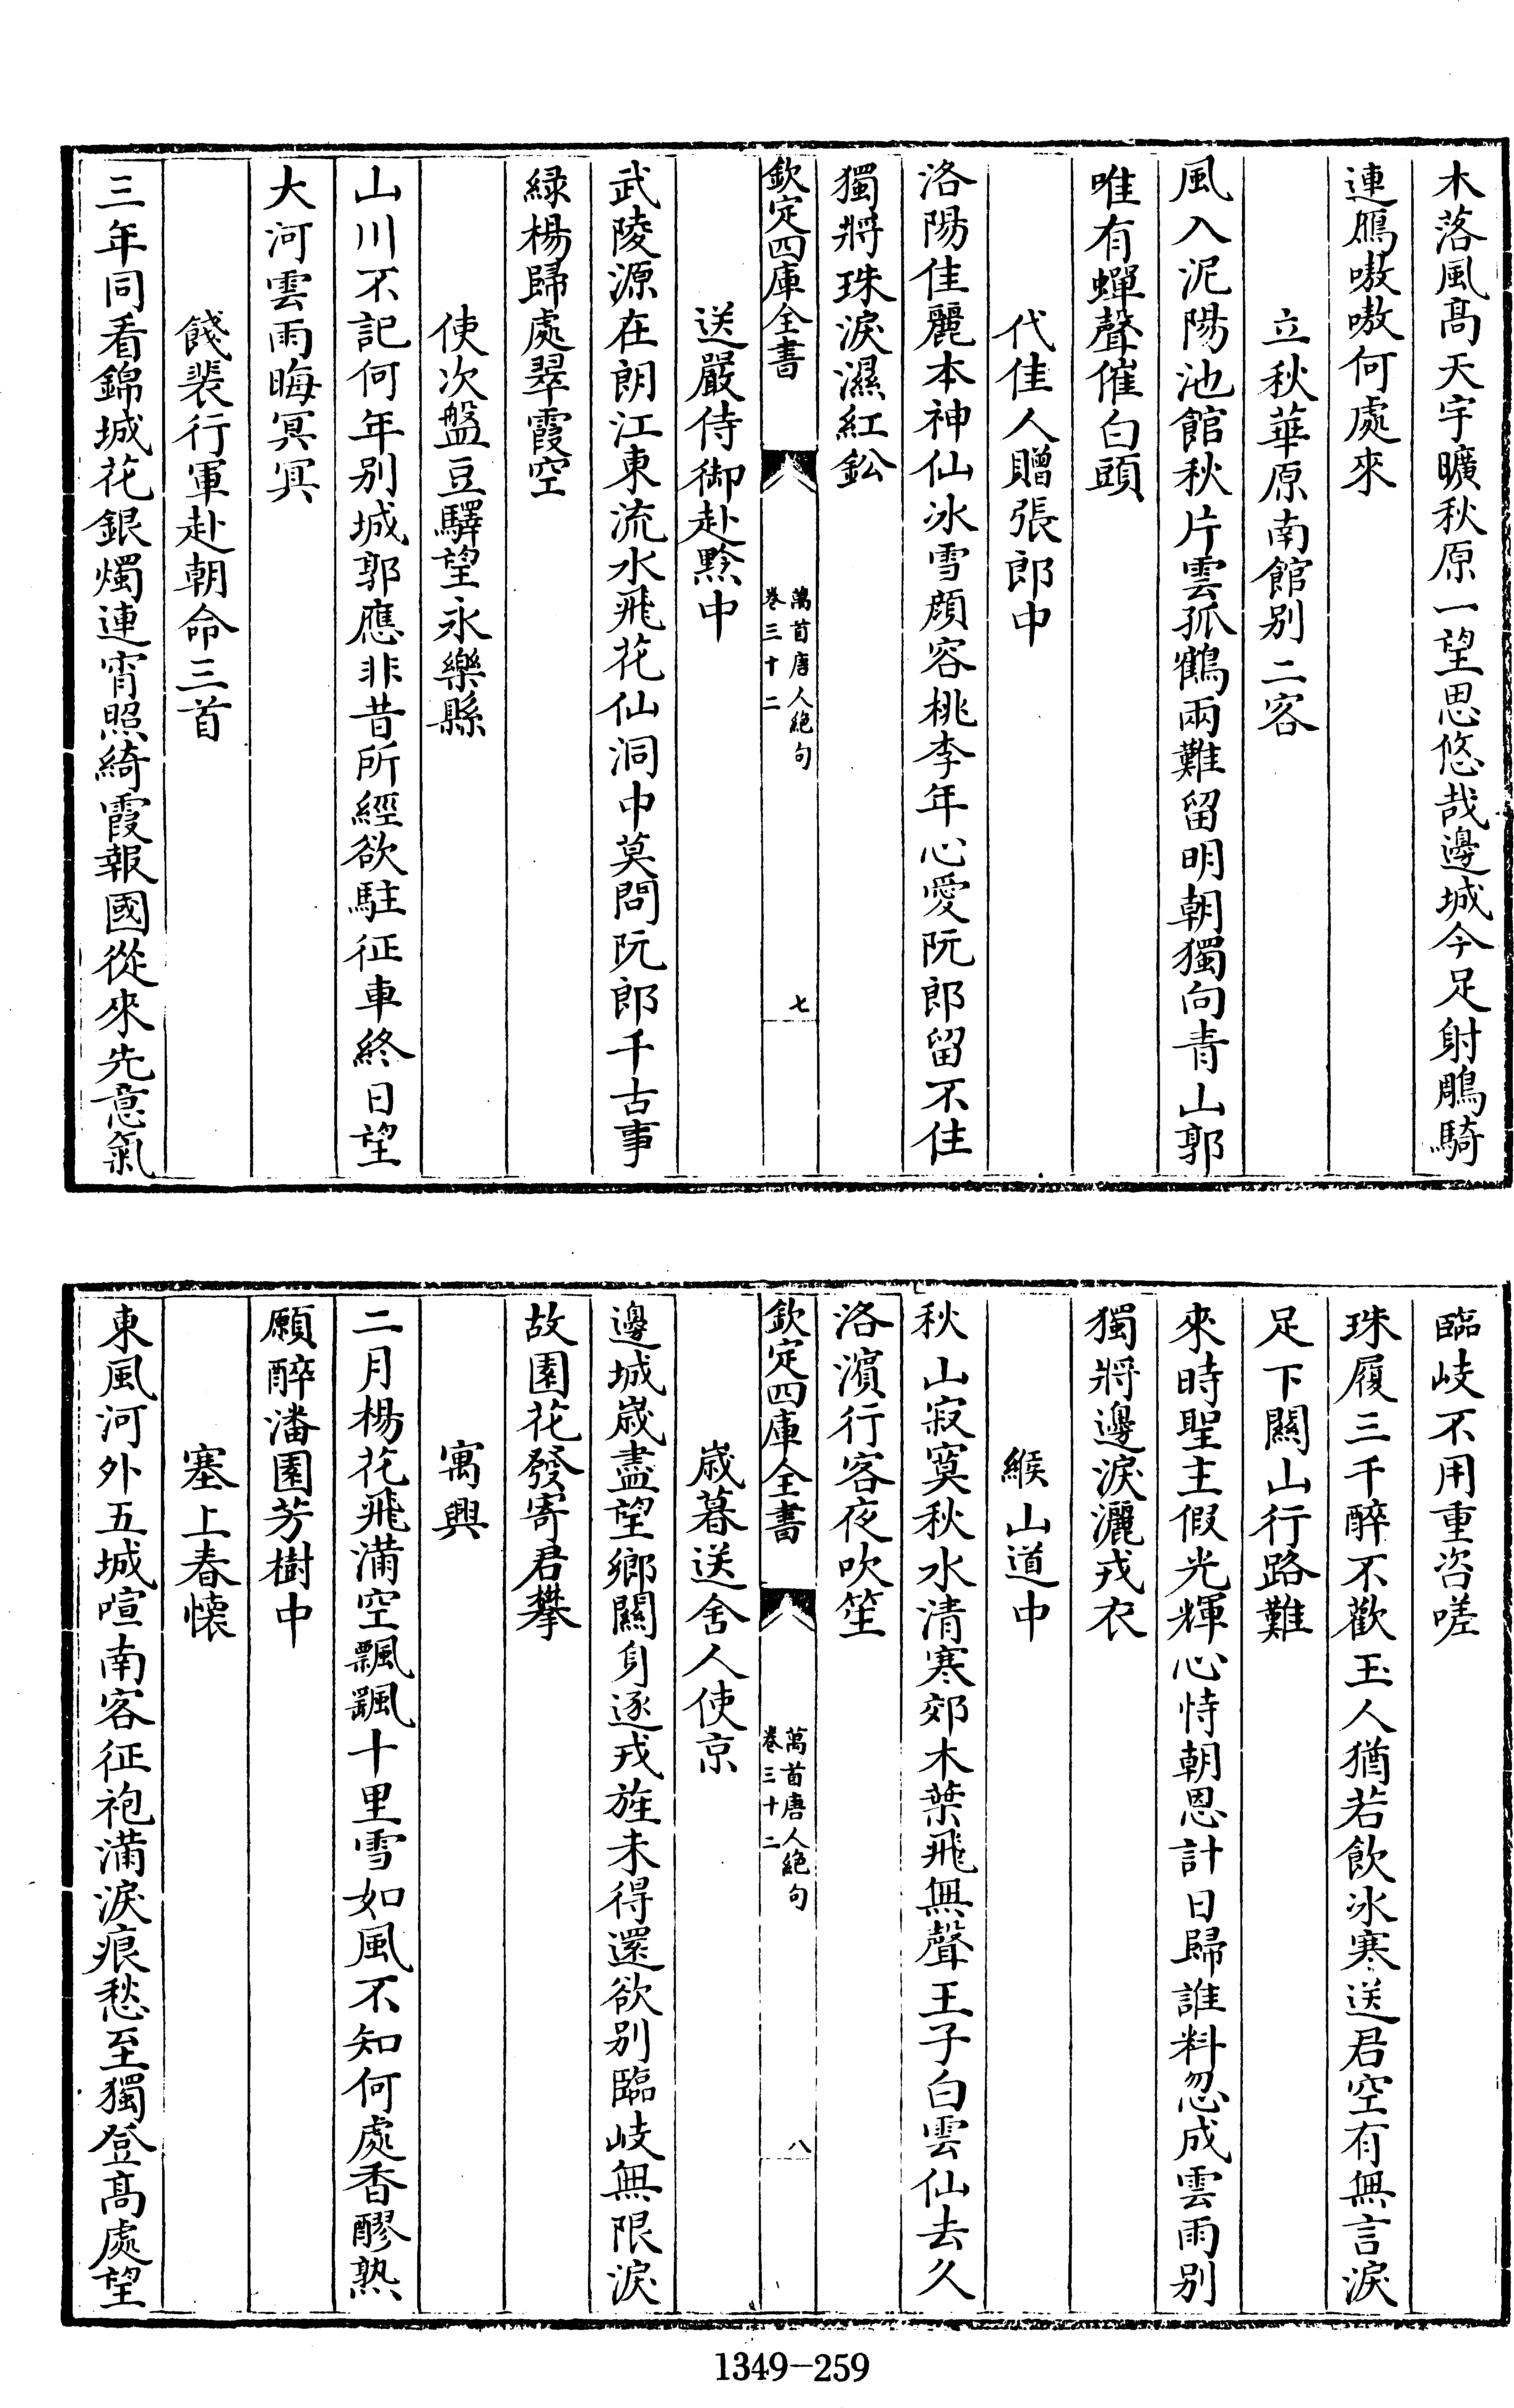 木落風髙天宇曠秋原一望思悠哉邊城今足射鵰騎
連鴈嗷嗷何處來
立秋華原南館别二客
風入泥陽池館秋片雲孤鶴兩難留明朝獨向青山郭
唯有蟬聲催白頭
代佳人贈張郎中
洛陽佳麗本神仙冰雪顔容桃李年心愛阮郎留不住
獨將珠淚濕紅鈆
欽定四庫全書
萬首唐人絶句
卷三十二
七
送嚴侍御赴黔中
武陵源在朗江東流水飛花仙洞中莫問阮郎千古事
緑楊歸處翠霞空
使次盤豆驛望永樂縣
山川不記何年别城郭應非昔所經欲駐征車終日望
大河雲雨晦冥冥
餞裴行軍赴朝命三首
三年同看錦城花銀燭連宵照綺霞報國從來先意氣
臨岐不用重咨嗟
珠履三千醉不歡玉人猶若飲冰寒送君空有無言淚
足下關山行路難
來時聖主假光輝心恃朝恩計日歸誰料忽成雲雨别
獨將邊淚灑戎衣
緱山道中
秋山寂寞秋水清寒郊木葉飛無聲王子白雲仙去久
洛濱行客夜吹笙
欽定四庫全書
萬首唐人絶句
卷三十二
八
歳暮送舍人使京
邊城歳盡望鄉關身逐戎旌未得還欲别臨岐無限淚
故園花發寄君攀
寓興
二月楊花飛滿空飄飄十里雪如風不知何處香醪熟
願醉潘園芳樹中
塞上春懷
東風河外五城喧南客征袍滿淚痕愁至獨登髙處望
1349-259